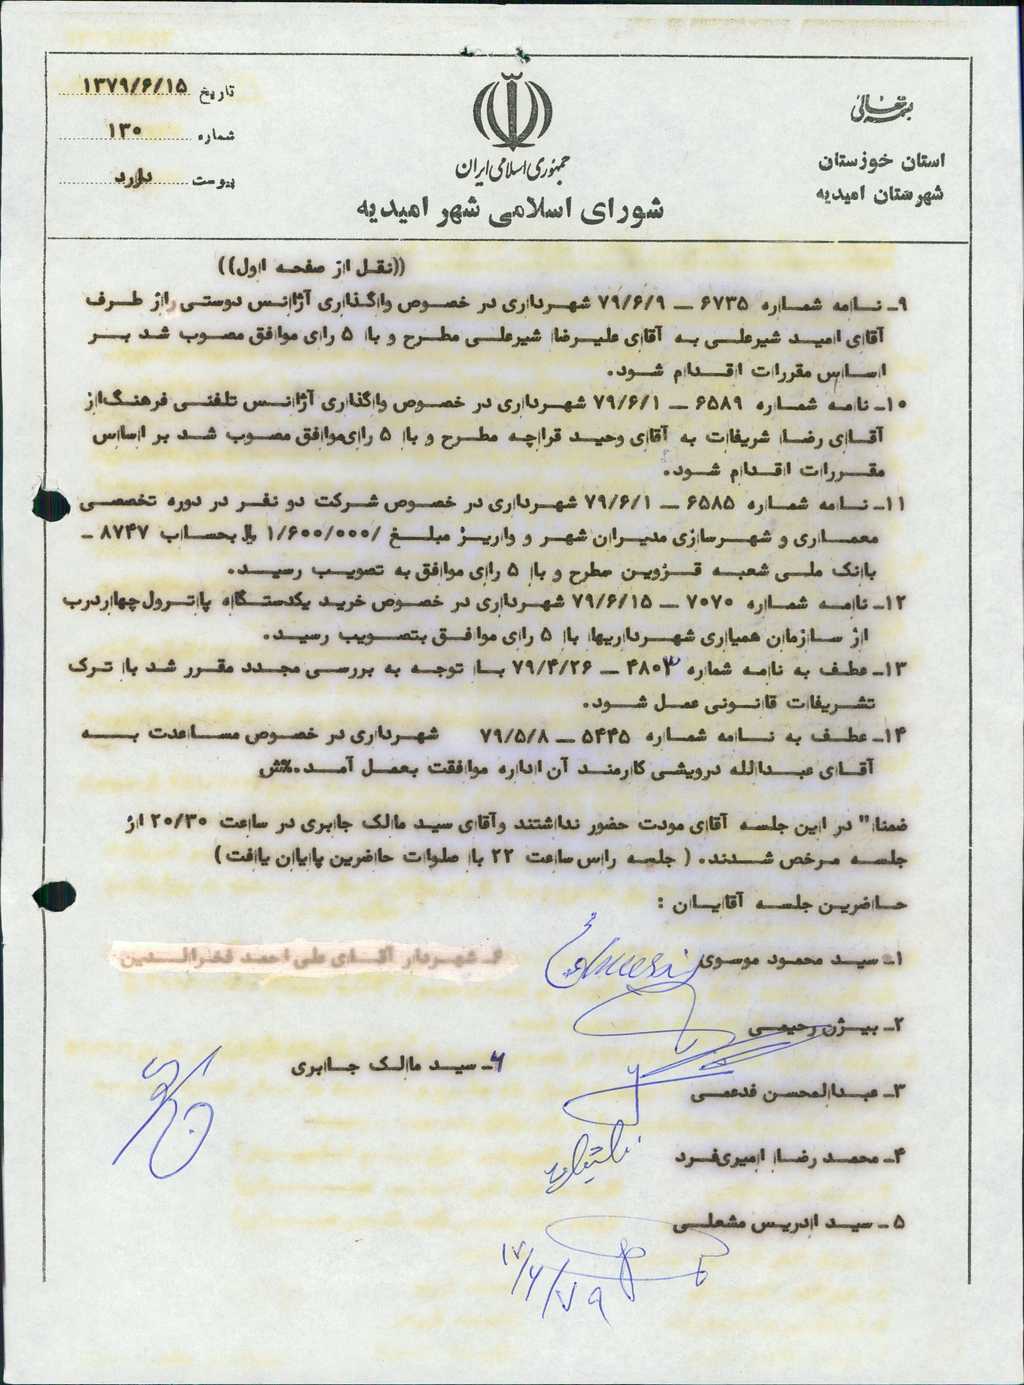 بسمه تعالی
استان خوزستان
شهرستان امیدیه
جمهوری اسلامی ایران
شورای اسلامی شهر امیدیه
تاریخ ۱۳۷۹/۶/۱۵
شماره ۱۳۰
پیوست دارد
((نقل از صفحه اول))
۹ـ نامه شماره ۶۷۳۵ ـ ۷۹/۶/۹ شهرداری در خصوص واگذاری آژانس دوستی راز طرف
آقای امید شیرعلی به آقای علیرضا شیرعلی مطرح و با ۵ رای موافق مصوب شد بر
اساس مقررات اقدام شود.
۱۰ـ نامه شماره ۶۵۸۹ ـ ۷۹/۶/۱ شهرداری در خصوص واگذاری آژانس تلفنی فرهنگ از
آقای رضا شریفات به آقای وحید قراچه مطرح و با ۵ رای موافق مصوب شد بر اساس
مقررات اقدام شود.
۱۱ـ نامه شماره ۶۵۸۵ ـ ۷۹/۶/۱ شهرداری در خصوص شرکت دو نفر در دوره تخصصی
معماری و شهرسازی مدیران شهر و واریز مبلغ /۱/۶۰۰/۰۰۰ ریال بحساب ۸۷۴۷ ـ
بانک ملی شعبه قزوین مطرح و با ۵ رای موافق به تصویب رسید.
۱۲ـ نامه شماره ۷۰۷۰ ـ ۷۹/۶/۱۵ شهرداری در خصوص خرید یکدستگاه پاترول چهاردرب
از سازمان همیاری شهرداریها با ۵ رای موافق بتصویب رسید.
۱۳ـ عطف به نامه شماره ۴۸۰۳ ـ ۷۹/۴/۲۶ با توجه به بررسی مجدد مقرر شد با ترک
تشریفات قانونی عمل شود.
۱۴ـ عطف به نامه شماره ۵۴۴۵ ـ ۷۹/۵/۸ شهرداری در خصوص مساعدت به
آقای عبدالله درویشی کارمند آن اداره موافقت بعمل آمد.%ش
ضمنا" در این جلسه آقای مودت حضور نداشتند وآقای سید مالک جابری در ساعت ۲۰/۳۰ از
جلسه مرخص شدند. ( جلسه راس ساعت ۲۲ با صلوات حاضرین پایان یافت )
حاضرین جلسه آقایان :
۱ـ سید محمود موسوی
۶ـ شهردار آقای علی احمد فخرالدین
۲ـ بیژن رحیمی
۶ـ سید مالک جابری
۳ـ عبدالمحسن فدعمی
۴ـ محمد رضا امیری‌فرد
۵ ـ سید ادریس مشعلی
۱۷/۶/۷۹